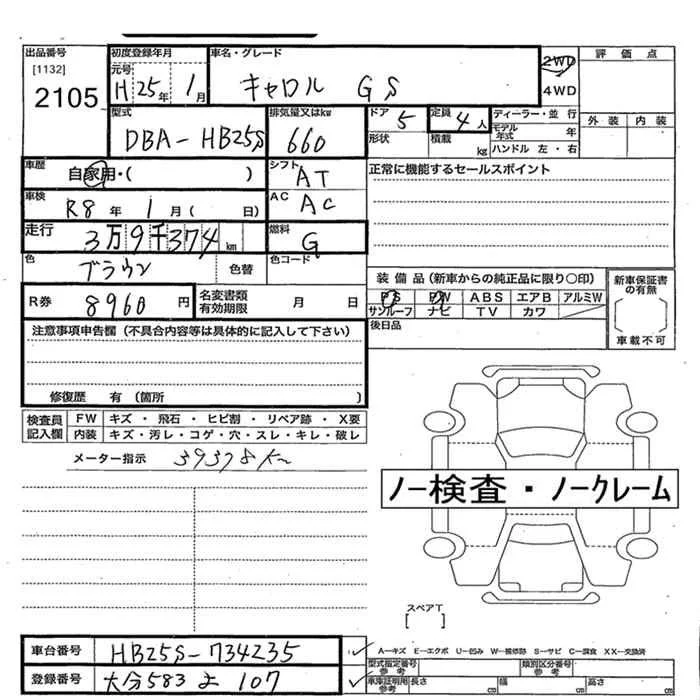 出品番号 初度登録年月 車名・グレード 2WD 評価点
[1132] 元号
2105 H 25年 1月 キャロル GS 4WD
型式 排気量又はkw ドア 5 定員 4人 ディーラー・並行 外装 内装
DBA-HB25S 660 形状 積載 kg モデル年式 年
ハンドル 左・右
車歴 自家用・( ) シフト AT 正常に機能するセールスポイント
車検 R8年 1月( 日) AC AC
走行 3万9千374km 燃料 G
色 ブラウン 色替 色コード
装備品(新車からの純正品に限り○印) 新車保証書の有無
R券 8960円 名変書類有効期限 月 日 PS PW ABS エアB アルミW
サンルーフ ナビ TV カワ
車載不可
注意事項申告欄(不具合内容等は具体的に記入して下さい) 後日品
修復歴 有(箇所 )
検査員記入欄 FW キズ・飛石・ヒビ割・リペア跡・X要
内装 キズ・汚レ・コゲ・穴・スレ・キレ・破レ
メーター指示 39378K
ノー検査・ノークレーム
スペアT
[ ]
A-キズ E-エクボ U-凹み W-補修跡 S-サビ C-腐食 XX-交換済
車台番号 HB25S-734235 型式指定番号参考 類別区分番号参考
登録番号 大分583 よ 107 車庫証明用参考 長さ cm 幅 cm 高さ cm